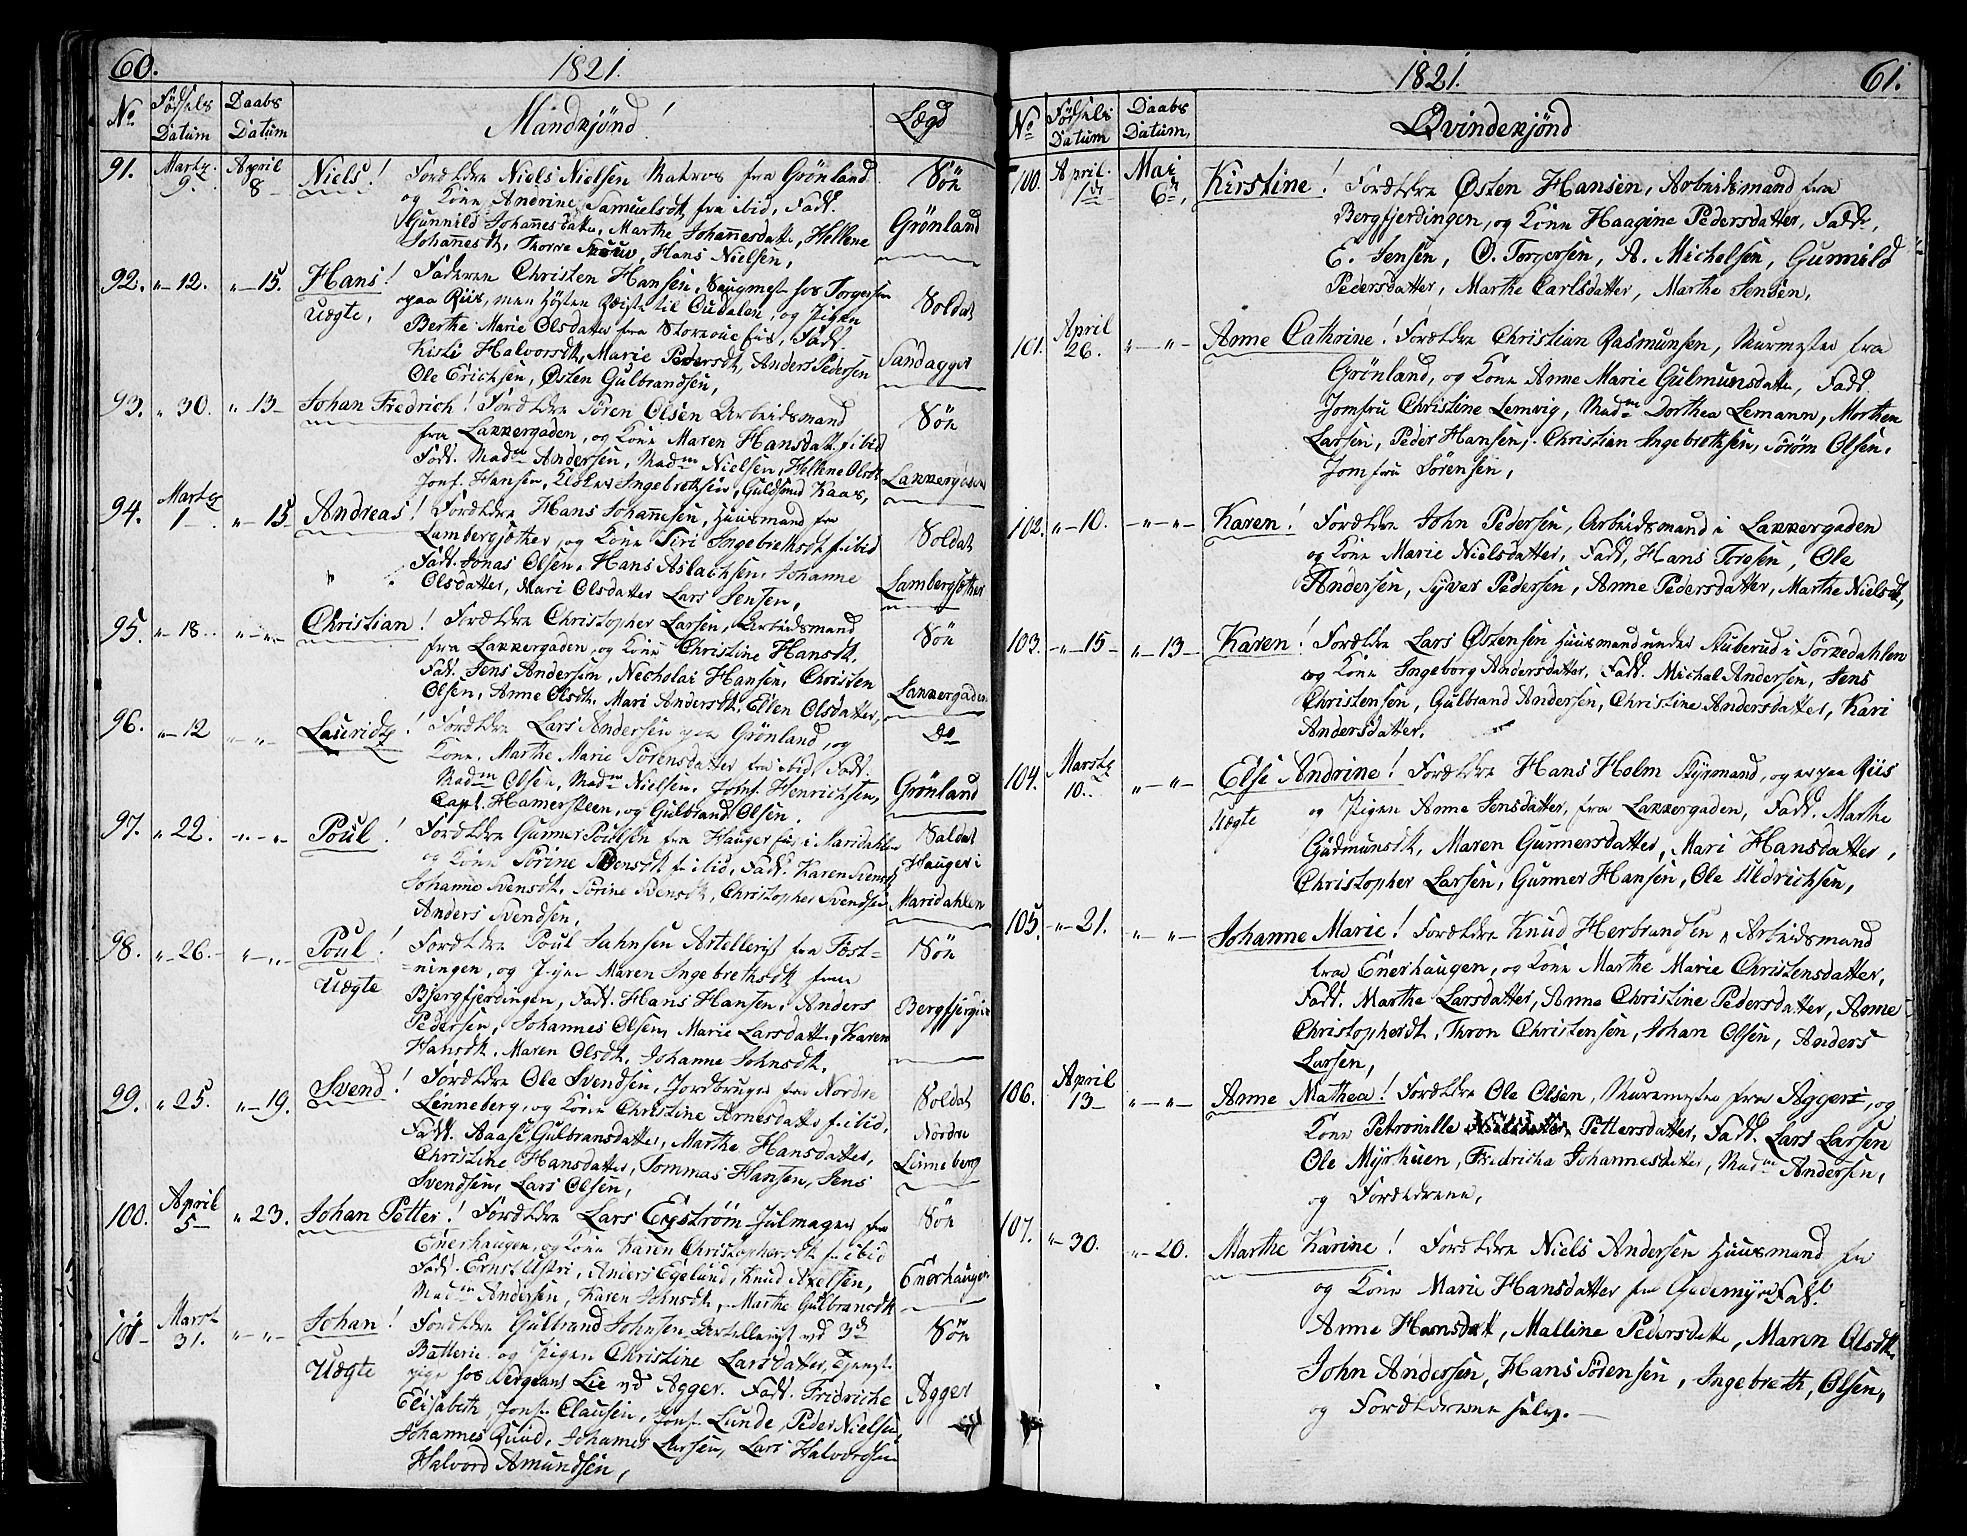 60.
1821.
No
Fødsels Datum
Daabs Datum
Mandkjønd!
Lægd
91.
Martz 9
April 8
Niels! Forældre Niels Nielsen Matros fra Grønland
og Kone Andrine Samuelsdt, fra ibid, Fadd.
Gunnild Johannesdatter, Marthe Johannesdatter, Hellene
Johannesdt, Hans Nielsen,
Søn
Grønland
92.
" 12.
" 15.
Hans! Faderen Christen Hansen, Saugmest. hos Torgersen
Uægte, paa Riis, men Høsten Reiste til Oudalen, og Pigen
Berthe Marie Olsdatter fra Fadd.
Kisti Halvorsdt, Marie Pedersdt, Anders Pedersen
Ole Erichsen, Østen Gulbrandsen,
Soldat
93.
" 30.
" 13
Johan Fredrich! Forældre Søren Olsen Arbeidsmand
fra Lakkergaden, og Kone Maren Hansdatt. f. ibid
Fadd. Madm Andersen, Madm Nielsen, Hellene Olsdt
Jonf. Hansen, Ingebrethsen, Guldsmed Kaas,
Søn
Lakkergaden
94.
Martz 1
" 15
Andreas! Forældre Hans Johannesen, Huusmand fra
Lambergsæther, og Kone Siri Ingebrethsdt f. ibid
Fadd. Jonas Olsen, Hans Aslachsen, Johanne
Olsdatter, Mari Olsdatter Lars Jensen,
Soldat
Lambergsæther
95.
" 18
" "
Christian! Forældre Christopher Larsen, Arbeidsmand
fra Lakkergaden, og Kone Christine Hansdt.
Fadd. Jens Andersen, Necholai Hansen, Christen
Olsen, Anne Olsdt. Mari Andersdt. Ellen Olsdatter,
Søn
Lakkergaden
96.
" 12
" "
Lauridtz! Forældre Lars Andersen paa Grønland, og
Kone, Marthe Marie Sørensdatter fra ibid, Fadd.
Madm Olsen, Madm Nielsen, Jomf. Henrichsen,
Capt. Hamersteen, og Gulbrand Olsen.
Do
Grønland
97.
" 22.
" "
Poul! Forældre Gunner Poulsen fra Hauger i Maridahlen
og Kone Sørine f. ibid, Fadd. Karen Svensdt
Johanne Svensdt. Sørine Svensdt, Christopher Svendsen
Anders Svendsen,
Soldat
Hauger i
Maridahlen
98.
" 26.
" "
Poul! Forældre Poul Jahnsen Artellerist fra Fæst-
Uægte =ningen, og Pigen Maren Ingebrethsdt fra
Bjergfjerdingen, Fadd. Hans Hansen, Anders
Pedersen, Johannes Olsen, Marie Larsdatter, Karen
Hansdt. Maren Olsdt. Johanne Johnsdt.
Søn
99.
" 25.
" 19.
Svend! Forældre Ole Svendsen, Jordbruger fra Nordre
Linneberg, og Kone Christine Arnesdatter f. ibid,
Fadd. Aase Gulbransdatter, Marthe Hansdatter,
Christine Hansdatter, Tommas Hansen, Jens
Svendsen, Lars Olsen,
Soldat
Nordre
Linneberg
100.
April 5
" 23.
Johan Petter! Forældre Lars Egstrøm Hjulmager fra
Enerhaugen, og Kone Karen Christophersdt f. ibid
Fadd. Ernst Astri, Anders Egelund, Knud Axelsen,
Madm Andersen, Karen Johnsdt, Marthe Gulbransdt
Søn
Enerhaugen
101
Martz 31.
" "
Johan! Forældre Gulbrand Johnsen Artellerist ved 3d
Uægte Batterie og Pigen Christine Larsdatter, Tjeneste-
pige hos Sergeant Lie ved Agger. Fadd. Fridriche
Elisabeth, Jonf. Clausen, Jonf. Lunde, Peder Nielsen
Johannes Ruud, Johannes Larsen, Lars Halvordsen
Halvord Amundsen,
Søn
Agger
61.
1821.
No
Fødsels Datum
Daabs Datum,
Qvindekjønd
100.
April. 1de
Mai 6te,
Kirstine! Forældre Østen Hansen, Arbeidsmand fra
Bergfjerdingen, og Kone Haagine Pedersdatter, Fadd,
E. Jensen, O. Torgersen, A. Michelsen, Gunnild
Pedersdatter, Marthe Carlsdatter, Marthe Jensen,
101.
April 26.
" "
Anne Cathrine! Forældre Christian Rasmunsen, Murmester fra
Grønland, og Kone Anne Marie Gulmunsdatter, Fadd.
Jomfru Christine Lemvig, Madm Dorthea Lemann, Morthen
Larsen, Peder Hansen, Christian Ingebrethsen, Olsen,
Jomfru Sørensen,
102.
" 10.
" "
Karen! Forældre John Pedersen, Arbeidsmand i Lakkergaden
og Kone Marie Nielsdatter, Fadd, Hans Torgsen, Ole
Andersen, Syver Pedersen, Anne Pedersdatter, Marthe Nielsdt,
103.
" 15
" 13
Karen! Forældre Lars Østensen Huusmand under Stuberud i Sørkedahlen
og Kone Ingeborg Andersdatter, Fadd. Michel Andersen, Jens
Christensen, Gulbrand Andersen, Christine Andersdatter, Kari
Andersdatter.
104.
Martz 10.
" "
Else Andrine! Forældre Hans Holm Styrmand, og er paa Riis
Uægte og Pigen Anne Jensdatter, fra Lakkergaden, Fadd. Marthe
Gudmunsdt, Maren Gunnersdatter, Mari Hansdatter,
Christopher Larsen, Gunner Hansen, Ole Uldrichsen,
105.
" 21.
" "
Johanne Marie! Forældre Knud Herbrandsen, Arbeidsmand
fra Enerhaugen, og Kone Marthe Marie Christensdatter,
Fadd. Marthe Larsdatter, Anne Christine Pedersdatter, Anne
Christopherdt, Thron Christensen, Johan Olsen, Anders
Larsen,
106.
April 13
" "
Anne Mathea! Forældre Ole Olsen, Murmester fra Aggers, og
Kone Petronille Pettersdatter, Fadd. Lars Larsen
Ole Myrhuen, Fredricha Johannesdatter, Madm Andersen,
og Forældrene,
107.
" 30.
" 20.
Marthe Karine! Forældre Niels Andersen Huusmand fra
og Kone Marie Hansdatter fra Gjedemyra Fadd.
Anne Hansdatt, Malline Pedersdatter, Maren Olsdt.
John Andersen, Hans Sørensen, Ingebreth Olsen,
og Forældrene selv.